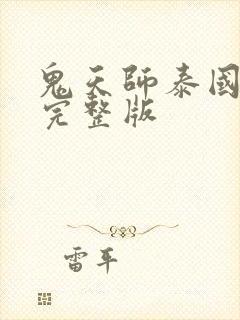 鬼天師泰國
完整版
雷平